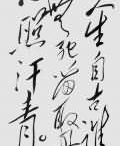 人生自古誰
無死留取丹
心照汗青